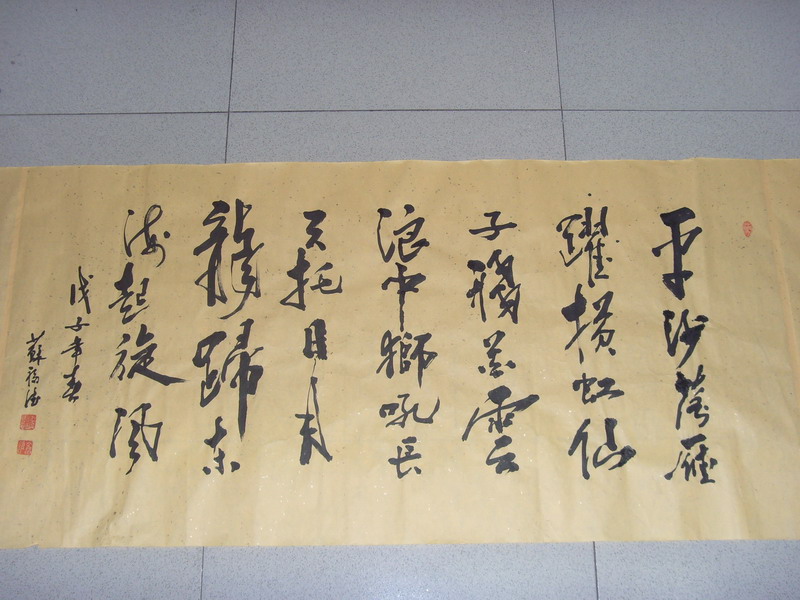 平沙落雁
躍横虹仙
子雲
浪中獅吼長
天托日月
龍歸東
海起旋風
戊子年春
蘇